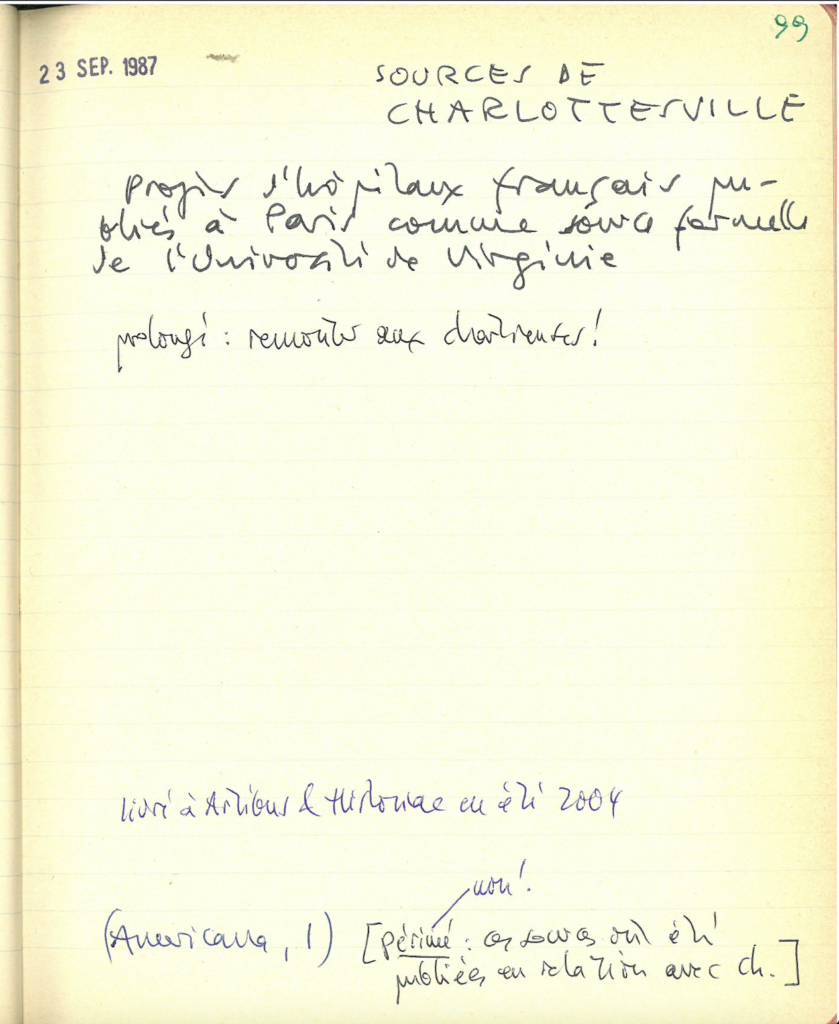 99
23 SEP. 1987
SOURCES DE
CHARLOTTESVILLE
Projets d'hôpitaux français pu-
bliés à Paris comme source formelle
de l'Université de Virginie
prolongé : remonter aux chartreuses !
livré à Artibus & Historiae en été 2004
non !
(Americana, 1) [périmé : ces sources ont été
publiées en relation avec Ch.]